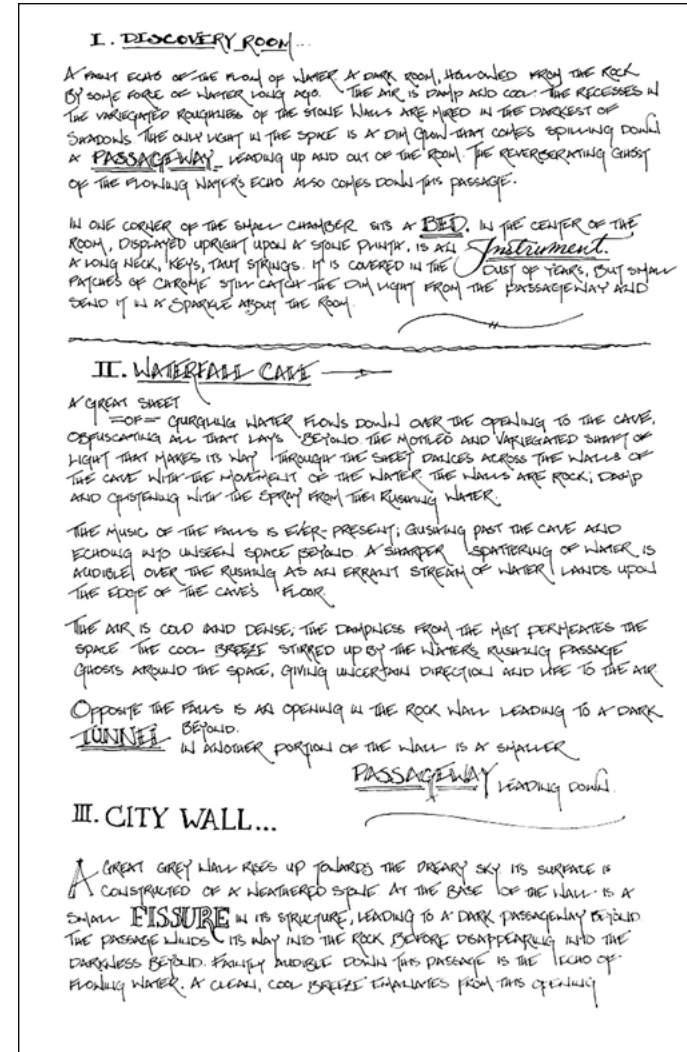 I. DISCOVERY ROOM...
A FAINT ECHO OF THE FLOW OF WATER. A DARK ROOM, HOLLOWED FROM THE ROCK
BY SOME FORCE OF WATER LONG AGO. THE AIR IS DAMP AND COOL. THE RECESSES IN
THE VARIEGATED ROUGHNESS OF THE STONE WALLS ARE MIRED IN THE DARKEST OF
SHADOWS. THE ONLY LIGHT IN THE SPACE IS A DIM GLOW THAT COMES SPILLING DOWN
A PASSAGEWAY LEADING UP AND OUT OF THE ROOM. THE REVERBERATING GHOST
OF THE FLOWING WATER'S ECHO ALSO COMES DOWN THIS PASSAGE.
IN ONE CORNER OF THE SMALL CHAMBER SITS A BED. IN THE CENTER OF THE
ROOM, DISPLAYED UPRIGHT UPON A STONE PLINTH, IS AN Instrument.
A LONG NECK, KEYS, TAUT STRINGS. IT IS COVERED IN THE DUST OF YEARS, BUT SMALL
PATCHES OF CHROME STILL CATCH THE DIM LIGHT FROM THE PASSAGEWAY AND
SEND IT IN A SPARKLE ABOUT THE ROOM.
II. WATERFALL CAVE
A GREAT SHEET
=OF= GURGLING WATER FLOWS DOWN OVER THE OPENING TO THE CAVE,
OBFUSCATING ALL THAT LAYS BEYOND. THE MOTTLED AND VARIEGATED SHAFT OF
LIGHT THAT MAKES ITS WAY THROUGH THE SHEET DANCES ACROSS THE WALLS OF
THE CAVE WITH THE MOVEMENT OF THE WATER. THE WALLS ARE ROCK; DAMP
AND GLISTENING WITH THE SPRAY FROM THE RUSHING WATER.
THE MUSIC OF THE FALLS IS EVER-PRESENT; GUSHING PAST THE CAVE AND
ECHOING INTO UNSEEN SPACE BEYOND. A SHARPER SPATTERING OF WATER IS
AUDIBLE OVER THE RUSHING AS AN ERRANT STREAM OF WATER LANDS UPON
THE EDGE OF THE CAVE'S FLOOR.
THE AIR IS COLD AND DENSE; THE DAMPNESS FROM THE MIST PERMEATES THE
SPACE. THE COOL BREEZE STIRRED UP BY THE WATER'S RUSHING PASSAGE
GHOSTS AROUND THE SPACE, GIVING UNCERTAIN DIRECTION AND LIFE TO THE AIR
OPPOSITE THE FALLS IS AN OPENING IN THE ROCK WALL LEADING TO A DARK
TUNNEL BEYOND.
IN ANOTHER PORTION OF THE WALL IS A SMALLER
PASSAGEWAY LEADING DOWN.
III. CITY WALL...
A GREAT GREY WALL RISES UP TOWARDS THE DREARY SKY. ITS SURFACE IS
CONSTRUCTED OF A WEATHERED STONE. AT THE BASE OF THE WALL IS A
SMALL FISSURE IN ITS STRUCTURE, LEADING TO A DARK PASSAGEWAY BEYOND
THE PASSAGE WINDS ITS WAY INTO THE ROCK BEFORE DISAPPEARING INTO THE
DARKNESS BEYOND. FAINTLY AUDIBLE DOWN THIS PASSAGE IS THE ECHO OF
FLOWING WATER. A CLEAN, COOL BREEZE EMANATES FROM THIS OPENING